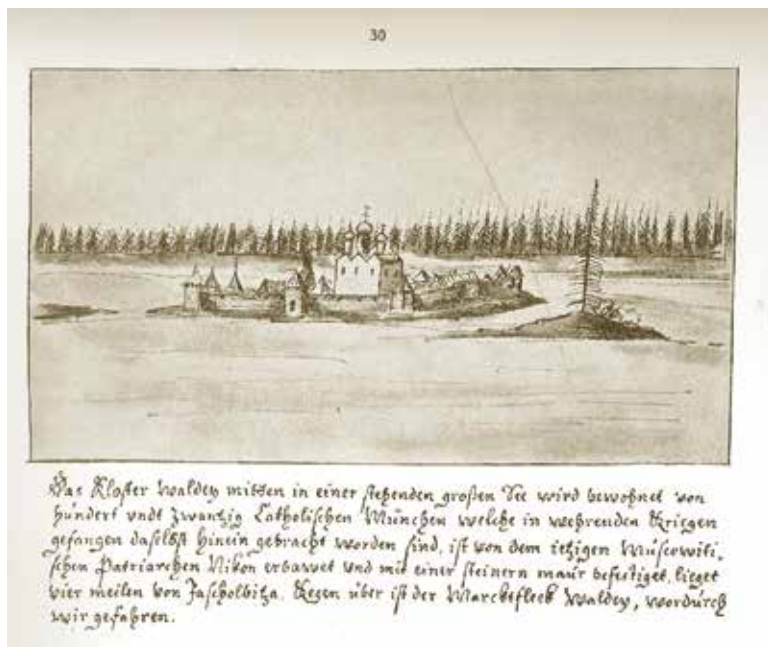 30
Das Kloster Waldey mitten in einer stehenden großen See wird bewohnet von
hundert undt zwantzig Catholischen München welche in wehrenden Kriegen
gefangen daselbst hinein gebracht worden sind, ist von dem itzigen Muscowiti,
schen Patriarchen Nikon erbawet und mit einer steinern maur befestiget, lieget
vier meilen von Jascholbitza. Kegen über ist der Marckefleck Waldey, wordurch
wir gefahren.